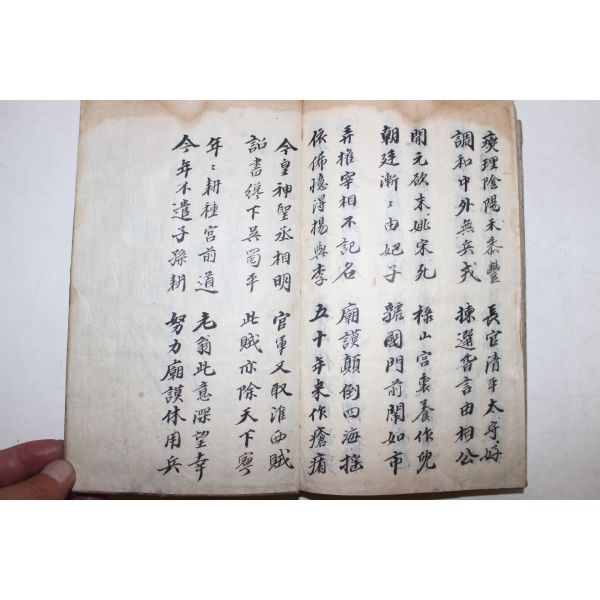 燮理陰陽禾黍豊
調和中外無兵戎
長官清平太守好
揀選皆言由相公
開元欲末姚宋死
朝廷漸〻由妃子
祿山宮裏養作兒
虢國門前鬧如市
弄権宰相不記名
依俙憶得楊與李
廟謨顛倒四海搖
五十年來作瘡痏
今皇神聖丞相明
詔書纔下吳蜀平
官軍又取淮西賊
此賊亦除天下寧
年〻耕種宮前道
今年不遣子孫耕
老翁此意深望幸
努力廟謨休用兵